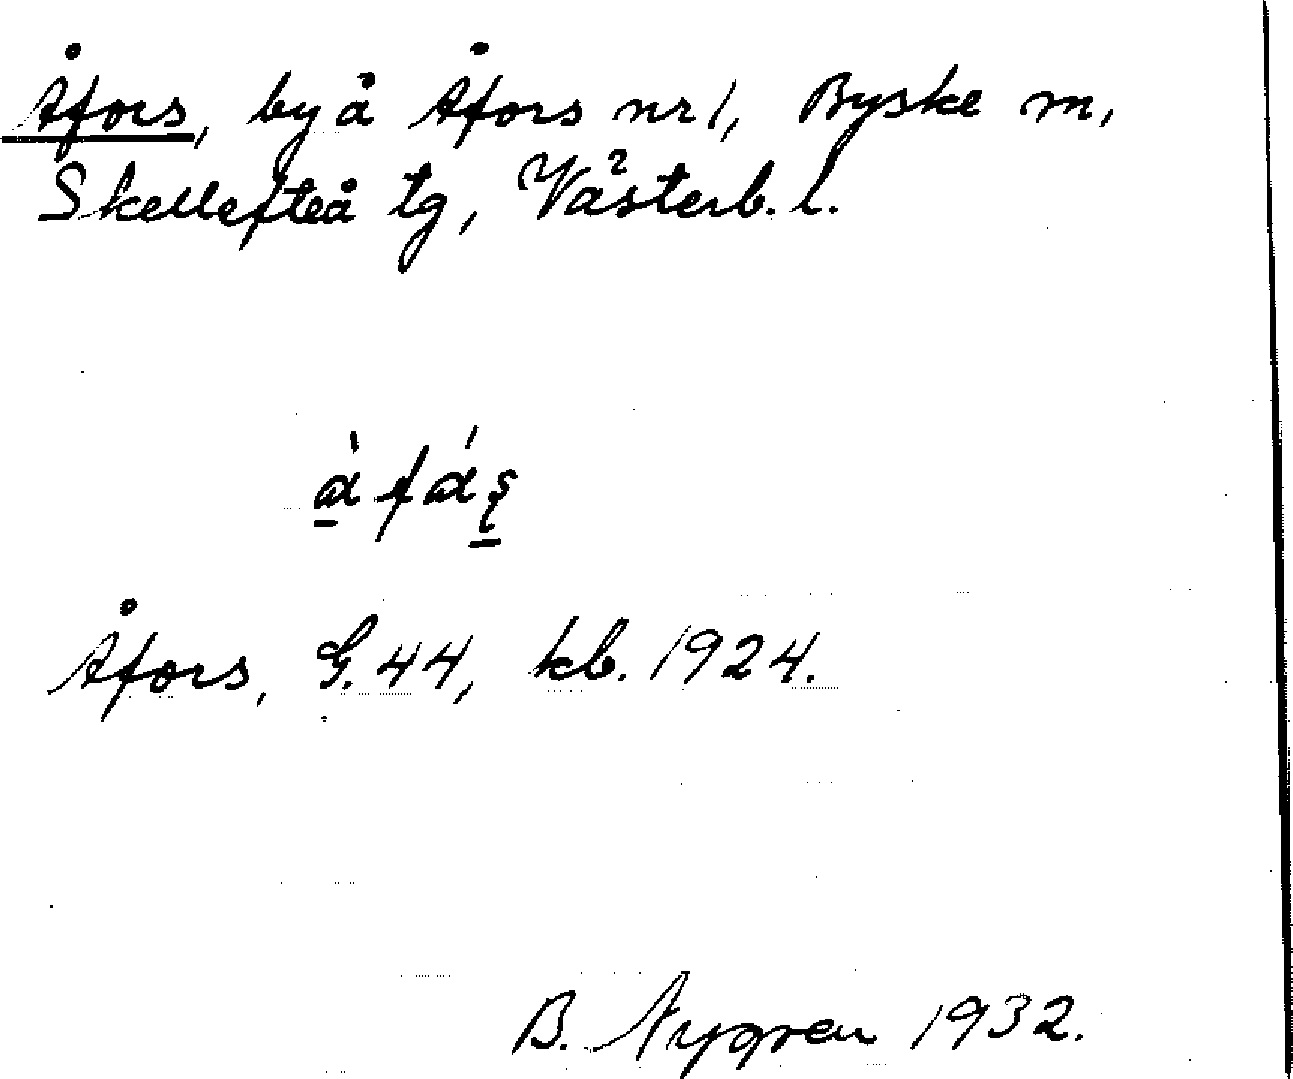 Åfors, by å Åfors nr 1, Byske sn,
Skellefteå tg, Västerb. l.
Åfors, G. 44, kb. 1924.
B. Nygren 1932.